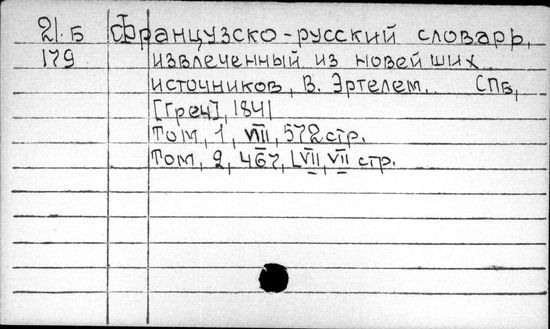 21.Б Французско-русский словарь,
179 извлеченный из новейших
источников, В. Эртелем. СПб,
[Греч], 1841
Том, 1, VIII, 572 стр.
Том, 2, 467, LVII, VII стр.